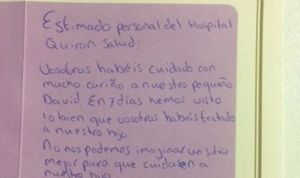 Estimado personal del Hospital
Quiron Salud:
Vosotros habéis cuidado con
mucho cariño a nuestro pequeño
David. En 7 días hemos visto
lo bien que vosotros habéis tratado
a nuestro hijo.
No nos podemos imaginar un sitio
mejor para que cuidasen a
nuestro hijo